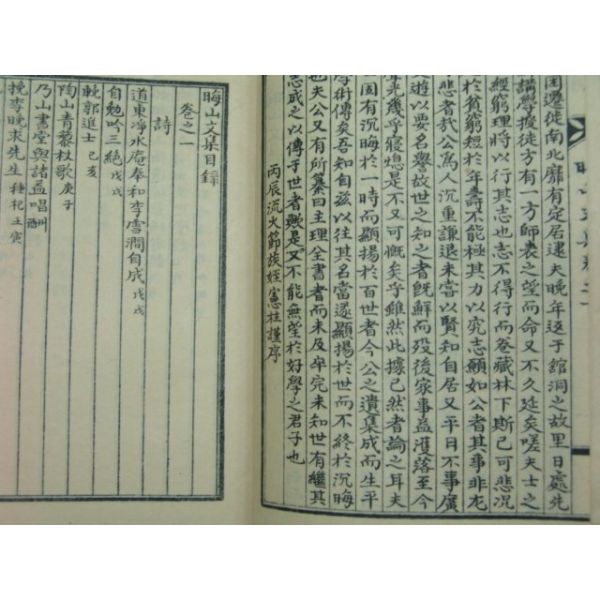 困遷徙南北靡有定居逮夫晩年返于舘洞之故里日處先
講學提徒方有一方師表之望而命又不久延矣嗟夫士之
經窮理將以行其志也志不得行而卷藏林下斯已可悲况
於貧窮短於年壽不能極其力以究志願如公者其事非尤
悲者哉公爲人沉重謙退未嘗以賢知自居又平日不事廣
交遊以要名譽故世之知之者旣鮮而歿後家事益濩落至今
光幾乎寢熄是不又可慨矣乎雖然此據已然者論之耳夫
固有沉晦於一時而顯揚於百世者今公之遺集成而生平
學術傳矣吾知自玆以往其名當遂顯揚於世而不終於沉晦
也夫公又有所纂曰主理全書者而未及卒完未知世有繼其
志成之以傳于世者歟是又不能無望於好學之君子也
丙辰流火節族姪憲柱謹序
晦山文集目錄
卷之一
詩
道東淨水庵奉和李雪澗自成 戊戌
自勉吟三絶 戊戌
輓郭進士 己亥
陶山青藜杖歌 庚子
乃山書堂與諸益唱酬
挽李晩求先生 種杞 壬寅